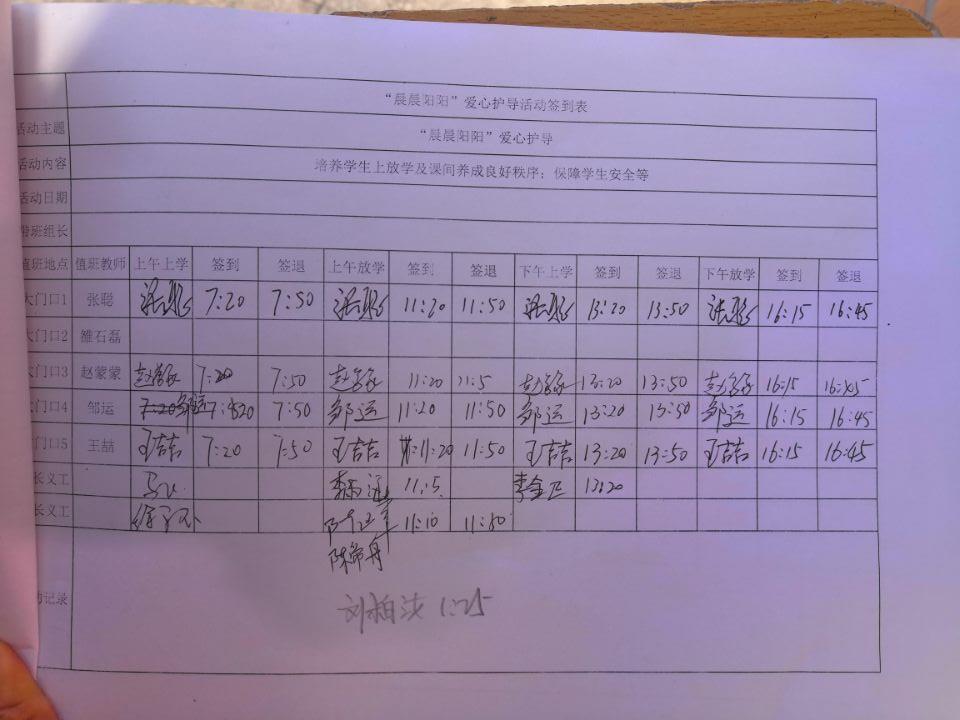 “晨晨阳阳”爱心护导活动签到表
活动主题 “晨晨阳阳”爱心护导
活动内容 培养学生上放学及课间养成良好秩序；保障学生安全等
活动日期
带班组长
值班地点 值班教师 上午上学 签到 签退 上午放学 签到 签退 下午上学 签到 签退 下午放学 签到 签退
大门口1 张聪 张聪 7:20 7:50 张聪 11:20 11:50 张聪 13:20 13:50 张聪 16:15 16:45
大门口2 雒石磊
大门口3 赵蒙蒙 赵蒙蒙 7:20 7:50 赵蒙蒙 11:20 11:5 赵蒙蒙 13:20 13:50 赵蒙蒙 16:15 16:45
大门口4 邹运 邹运 7:20 7:50 邹运 11:20 11:50 邹运 13:20 13:50 邹运 16:15 16:45
大门口5 王喆 王喆 7:20 7:50 王喆 11:20 11:50 王喆 13:20 13:50 王喆 16:15 16:45
长义工 11:15 李金卫 13:20
长义工 11:10
陈希丹
记录
1:25